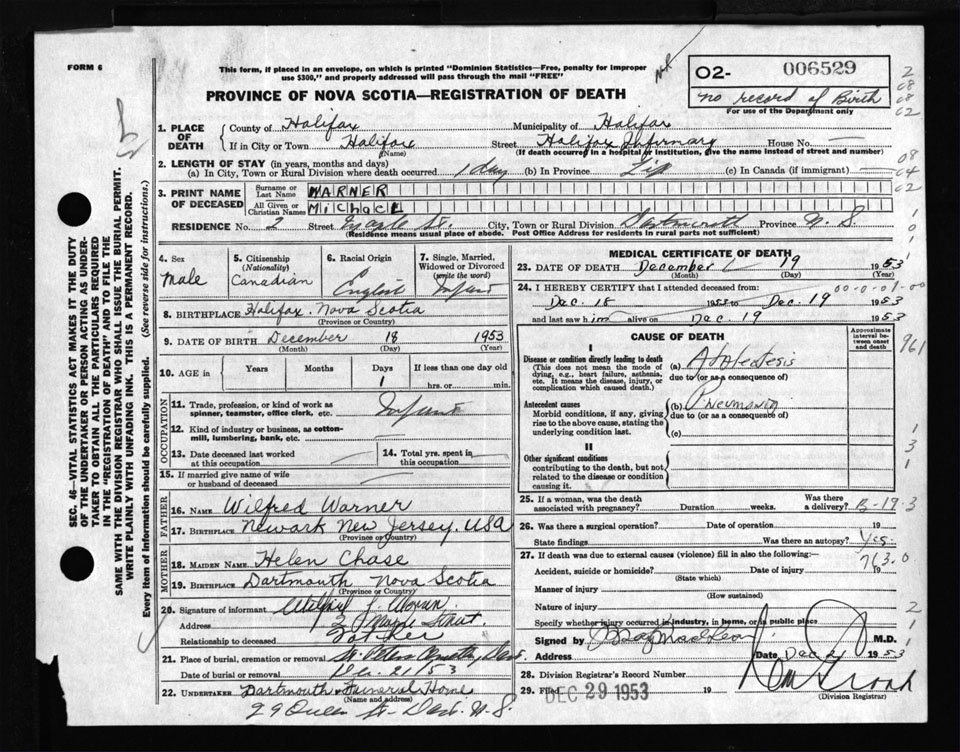 FORM 6
This form, if placed in an envelope, on which is printed "Dominion Statistics—Free, penalty for improper
use $300," and properly addressed will pass through the mail "FREE"
02- 006529
no record of Birth
For use of the Department only
PROVINCE OF NOVA SCOTIA—REGISTRATION OF DEATH
1. PLACE OF DEATH
County of Halifax Municipality of Halifax
If in City or Town Halifax (Name) Street Halifax Infirmary House No. —
(If death occurred in a hospital or institution, give the name instead of street and number)
2. LENGTH OF STAY (in years, months and days)
(a) In City, Town or Rural Division where death occurred 1 day (b) In Province Life (c) In Canada (if immigrant) —
3. PRINT NAME OF DECEASED
Surname or Last Name WARNER
All Given or Christian Names Michael
RESIDENCE No. 2 Street Maple St. City, Town or Rural Division Dartmouth Province N. S.
(Residence means usual place of abode. Post Office Address for residents in rural parts not sufficient)
4. Sex
Male
5. Citizenship (Nationality)
Canadian
6. Racial Origin
English
7. Single, Married, Widowed or Divorced (write the word)
Infant
8. BIRTHPLACE Halifax. Nova Scotia
(Province or Country)
9. DATE OF BIRTH December 18 1953
(Month) (Day) (Year)
10. AGE in Years Months Days If less than one day old
1 hrs. or min.
OCCUPATION
11. Trade, profession, or kind of work as spinner, teamster, office clerk, etc. Infant
12. Kind of industry or business, as cotton-mill, lumbering, bank, etc. —
13. Date deceased last worked at this occupation —
14. Total yrs. spent in this occupation —
15. If married give name of wife or husband of deceased —
FATHER
16. NAME Wilfred Warner
17. BIRTHPLACE Newark New Jersey, USA
(Province or Country)
MOTHER
18. MAIDEN NAME Helen Chase
19. BIRTHPLACE Dartmouth Nova Scotia
(Province or Country)
20. Signature of informant Wilfred J. Warner
Address 2 Maple Street
Relationship to deceased Father
21. Place of burial, cremation or removal St. Peters Cemetery, Dart.
Date of burial or removal Dec. 21/53
22. UNDERTAKER Dartmouth Funeral Home
(Name and address)
99 Queen St. Dart. N. S.
MEDICAL CERTIFICATE OF DEATH
23. DATE OF DEATH December 19 1953
(Month) (Day) (Year)
24. I HEREBY CERTIFY that I attended deceased from: 00-0-01-00
Dec. 18 1953 to Dec. 19 1953
and last saw him alive on Dec. 19 1953
CAUSE OF DEATH
Approximate interval between onset and death
I
Disease or condition directly leading to death
(This does not mean the mode of dying, e.g., heart failure, asthenia, etc. It means the disease, injury, or complication which caused death.)
(a) Atalectesis
due to (or as a consequence of)
Antecedent causes
Morbid conditions, if any, giving rise to the above cause, stating the underlying condition last.
(b) Pneumonia
due to (or as a consequence of)
(c)
II
Other significant conditions
contributing to the death, but not related to the disease or condition causing it.
25. If a woman, was the death associated with pregnancy? Duration weeks. Was there a delivery? B-19-3
26. Was there a surgical operation? Date of operation 19
State findings Was there an autopsy? Yes.
27. If death was due to external causes (violence) fill in also the following:—
763.0
Accident, suicide or homicide? Date of injury 19
(State which)
Manner of injury
(How sustained)
Nature of injury
Specify whether injury occurred in industry, in home, or in public place
Signed by M.D.
Address Date Dec 21 1953
28. Division Registrar's Record Number
29. Filed DEC 29 1953 19
(Division Registrar)
SEC. 46—VITAL STATISTICS ACT MAKES IT THE DUTY
OF THE UNDERTAKER OR PERSON ACTING AS UNDER-
TAKER TO OBTAIN ALL THE PARTICULARS REQUIRED
IN THE "REGISTRATION OF DEATH" AND TO FILE THE
SAME WITH THE DIVISION REGISTRAR WHO SHALL ISSUE THE BURIAL PERMIT.
WRITE PLAINLY WITH UNFADING INK. THIS IS A PERMANENT RECORD.
Every item of information should be carefully supplied. (See reverse side for instructions.)
2
08
08
02
08
04
02
1
0
1
961
1
3
1
2
1
1